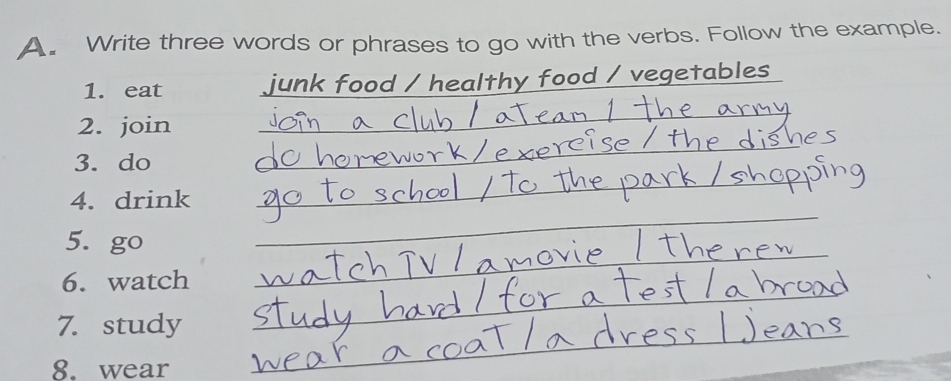 A. Write three words or phrases to go with the verbs. Follow the example.
1. eat junk food / healthy food / vegetables
2. join join a club / a Team / the army
3. do do homework / exercise / the dishes
4. drink go to school / to the park / shopping
5. go
6. watch watch TV / a movie / the new
7. study study hard / for a test / abroad
8. wear wear a coat / a dress / jeans